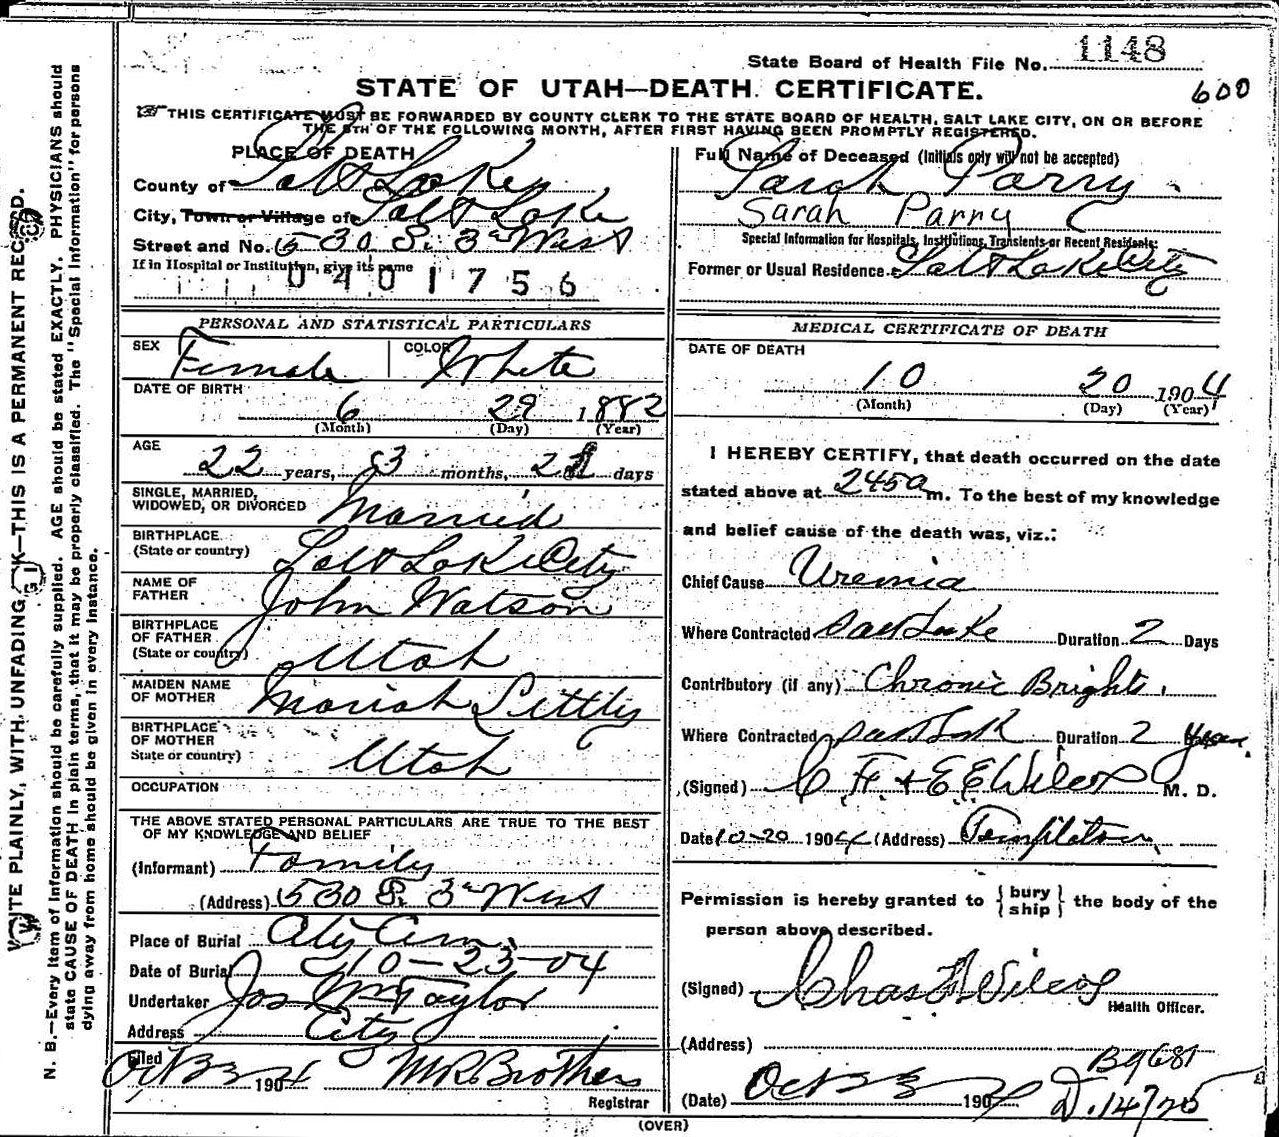 State Board of Health File No. 1148
STATE OF UTAH—DEATH CERTIFICATE.
600
THIS CERTIFICATE MUST BE FORWARDED BY COUNTY CLERK TO THE STATE BOARD OF HEALTH, SALT LAKE CITY, ON OR BEFORE
THE 5TH OF THE FOLLOWING MONTH, AFTER FIRST HAVING BEEN PROMPTLY REGISTERED.
PLACE OF DEATH
County of Salt Lake
City, Town or Village of Salt Lake
Street and No. 530 S. 3d West
If in Hospital or Institution, give its name
0401756
PERSONAL AND STATISTICAL PARTICULARS
SEX Female COLOR White
DATE OF BIRTH
6 29 1882
(Month) (Day) (Year)
AGE
22 years, 3 months, 21 days
SINGLE, MARRIED,
WIDOWED, OR DIVORCED Married
BIRTHPLACE
(State or country) Salt Lake City
NAME OF
FATHER John Watson
BIRTHPLACE
OF FATHER
(State or country) Utah
MAIDEN NAME
OF MOTHER Mariah
BIRTHPLACE
OF MOTHER
State or country) Utah
OCCUPATION
THE ABOVE STATED PERSONAL PARTICULARS ARE TRUE TO THE BEST
OF MY KNOWLEDGE AND BELIEF
(Informant) Family
(Address) 530 S. 3d West
Place of Burial City Cem.
Date of Burial 10-23-04
Undertaker Jos Wm Taylor
Address City
Filed
Oct 1904 Brothers
Registrar
Full Name of Deceased (Initials only will not be accepted)
Sarah Parry
Sarah Parry
Special Information for Hospitals, Institutions, Transients or Recent Residents:
Former or Usual Residence Salt Lake City
MEDICAL CERTIFICATE OF DEATH
DATE OF DEATH
10 20 1904
(Month) (Day) (Year)
I HEREBY CERTIFY, that death occurred on the date
stated above at 245 a m. To the best of my knowledge
and belief cause of the death was, viz.:
Chief Cause Uremia
Where Contracted Salt Lake Duration 2 Days
Contributory (if any) Chronic Brights.
Where Contracted Salt Lake Duration 2 years
(Signed) C. F. & E E Wilcox M. D.
Date 10-20 1904 (Address) Templeton
Permission is hereby granted to { bury
ship } the body of the
person above described.
(Signed) Chas F Wilcox
Health Officer.
(Address)
B9681
(Date) Oct 190
D. 14725
(OVER)
WRITE PLAINLY, WITH UNFADING INK—THIS IS A PERMANENT RECORD.
N. B.—Every item of information should be carefully supplied. AGE should be stated EXACTLY. PHYSICIANS should
state CAUSE OF DEATH in plain terms, that it may be properly classified. The "Special Information" for persons
dying away from home should be given in every instance.